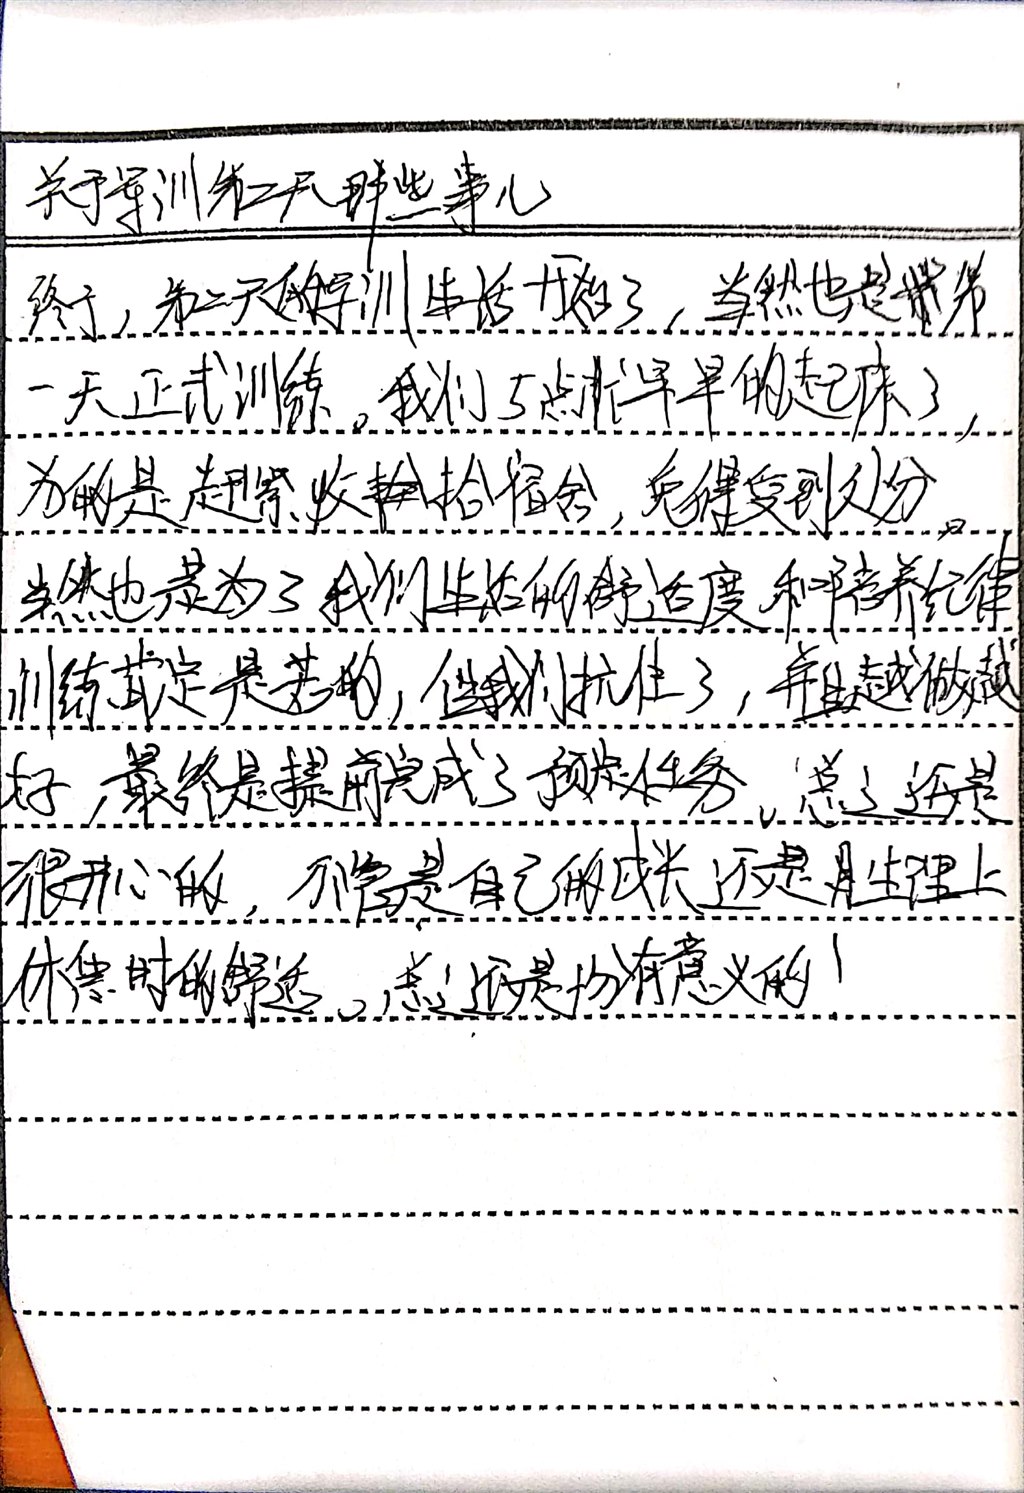 关于军训第二天那些事儿
终于,第二天的军训生活开始了,当然也是第
一天正式训练。我们5点忙早早的起床了,
为的是赶紧收拾宿舍,免得受到处分。
当然也是为了我们生活的舒适度和培养纪律
训练肯定是苦的,但我们抗住了,并且越做越
好,最终是提前完成了预定任务。总之还是
很开心的,不管是自己的成长还是生理上
休息时的舒适。总之还是均有意义的!